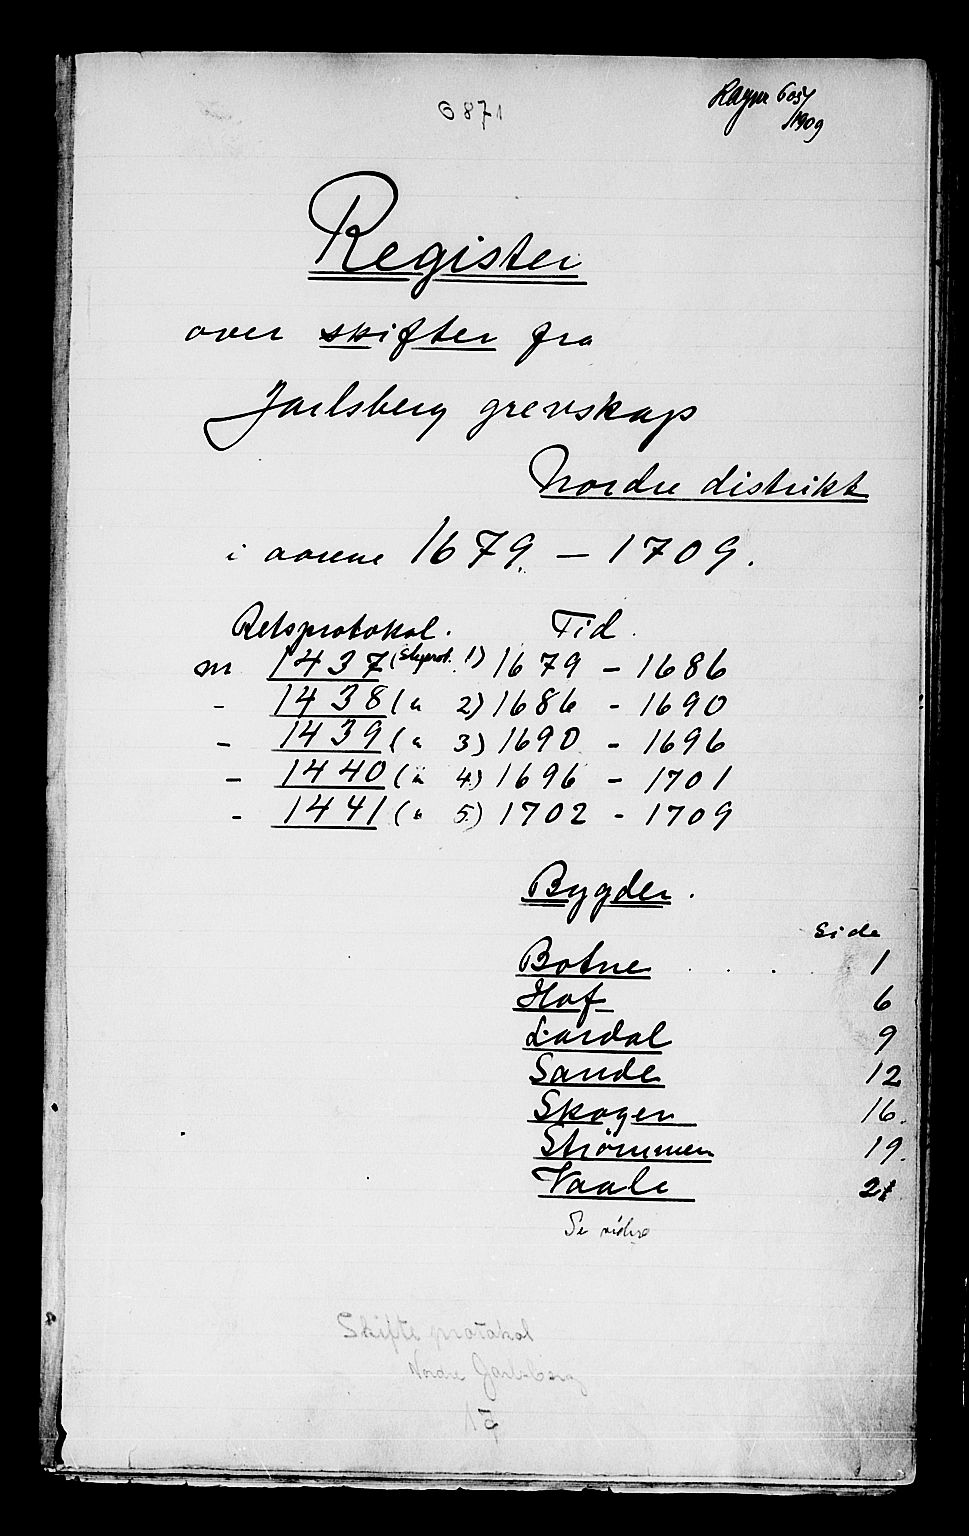 6871
605/
1909
Register
over skifter fra
Jarlsberg grevskap
Nordre distrikt
i aarene 1679. – 1709.
Retsprotokol. Tid.
nr 1437 (Skprot. 1) 1679 – 1686
- 1438 (" 2) 1686 - 1690
- 1439 (" 3) 1690 - 1696
- 1440 (" 4) 1696 - 1701
- 1441 (" 5) 1702 - 1709
Bygder.
Side
Botne . . . . 1
Hof 6
Lardal 9
Sande 12
Skoger 16.
Strømmen 19.
Vaale 21
Se videre
Skifte protokol
Nordre Jarlsberg